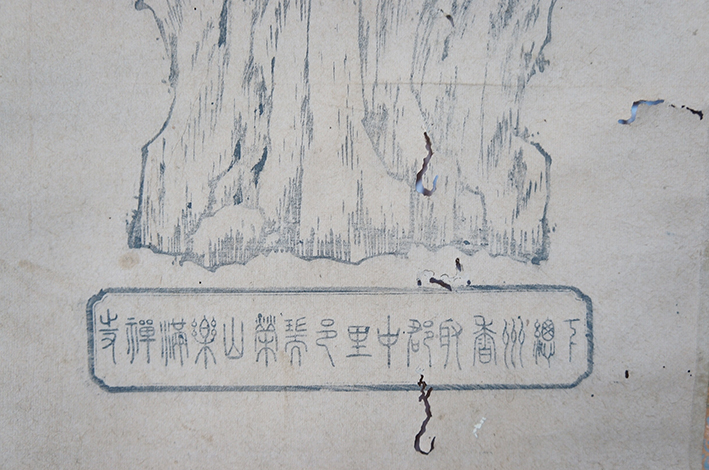 下總州香取郡中里邑琴榮山樂滿禪寺